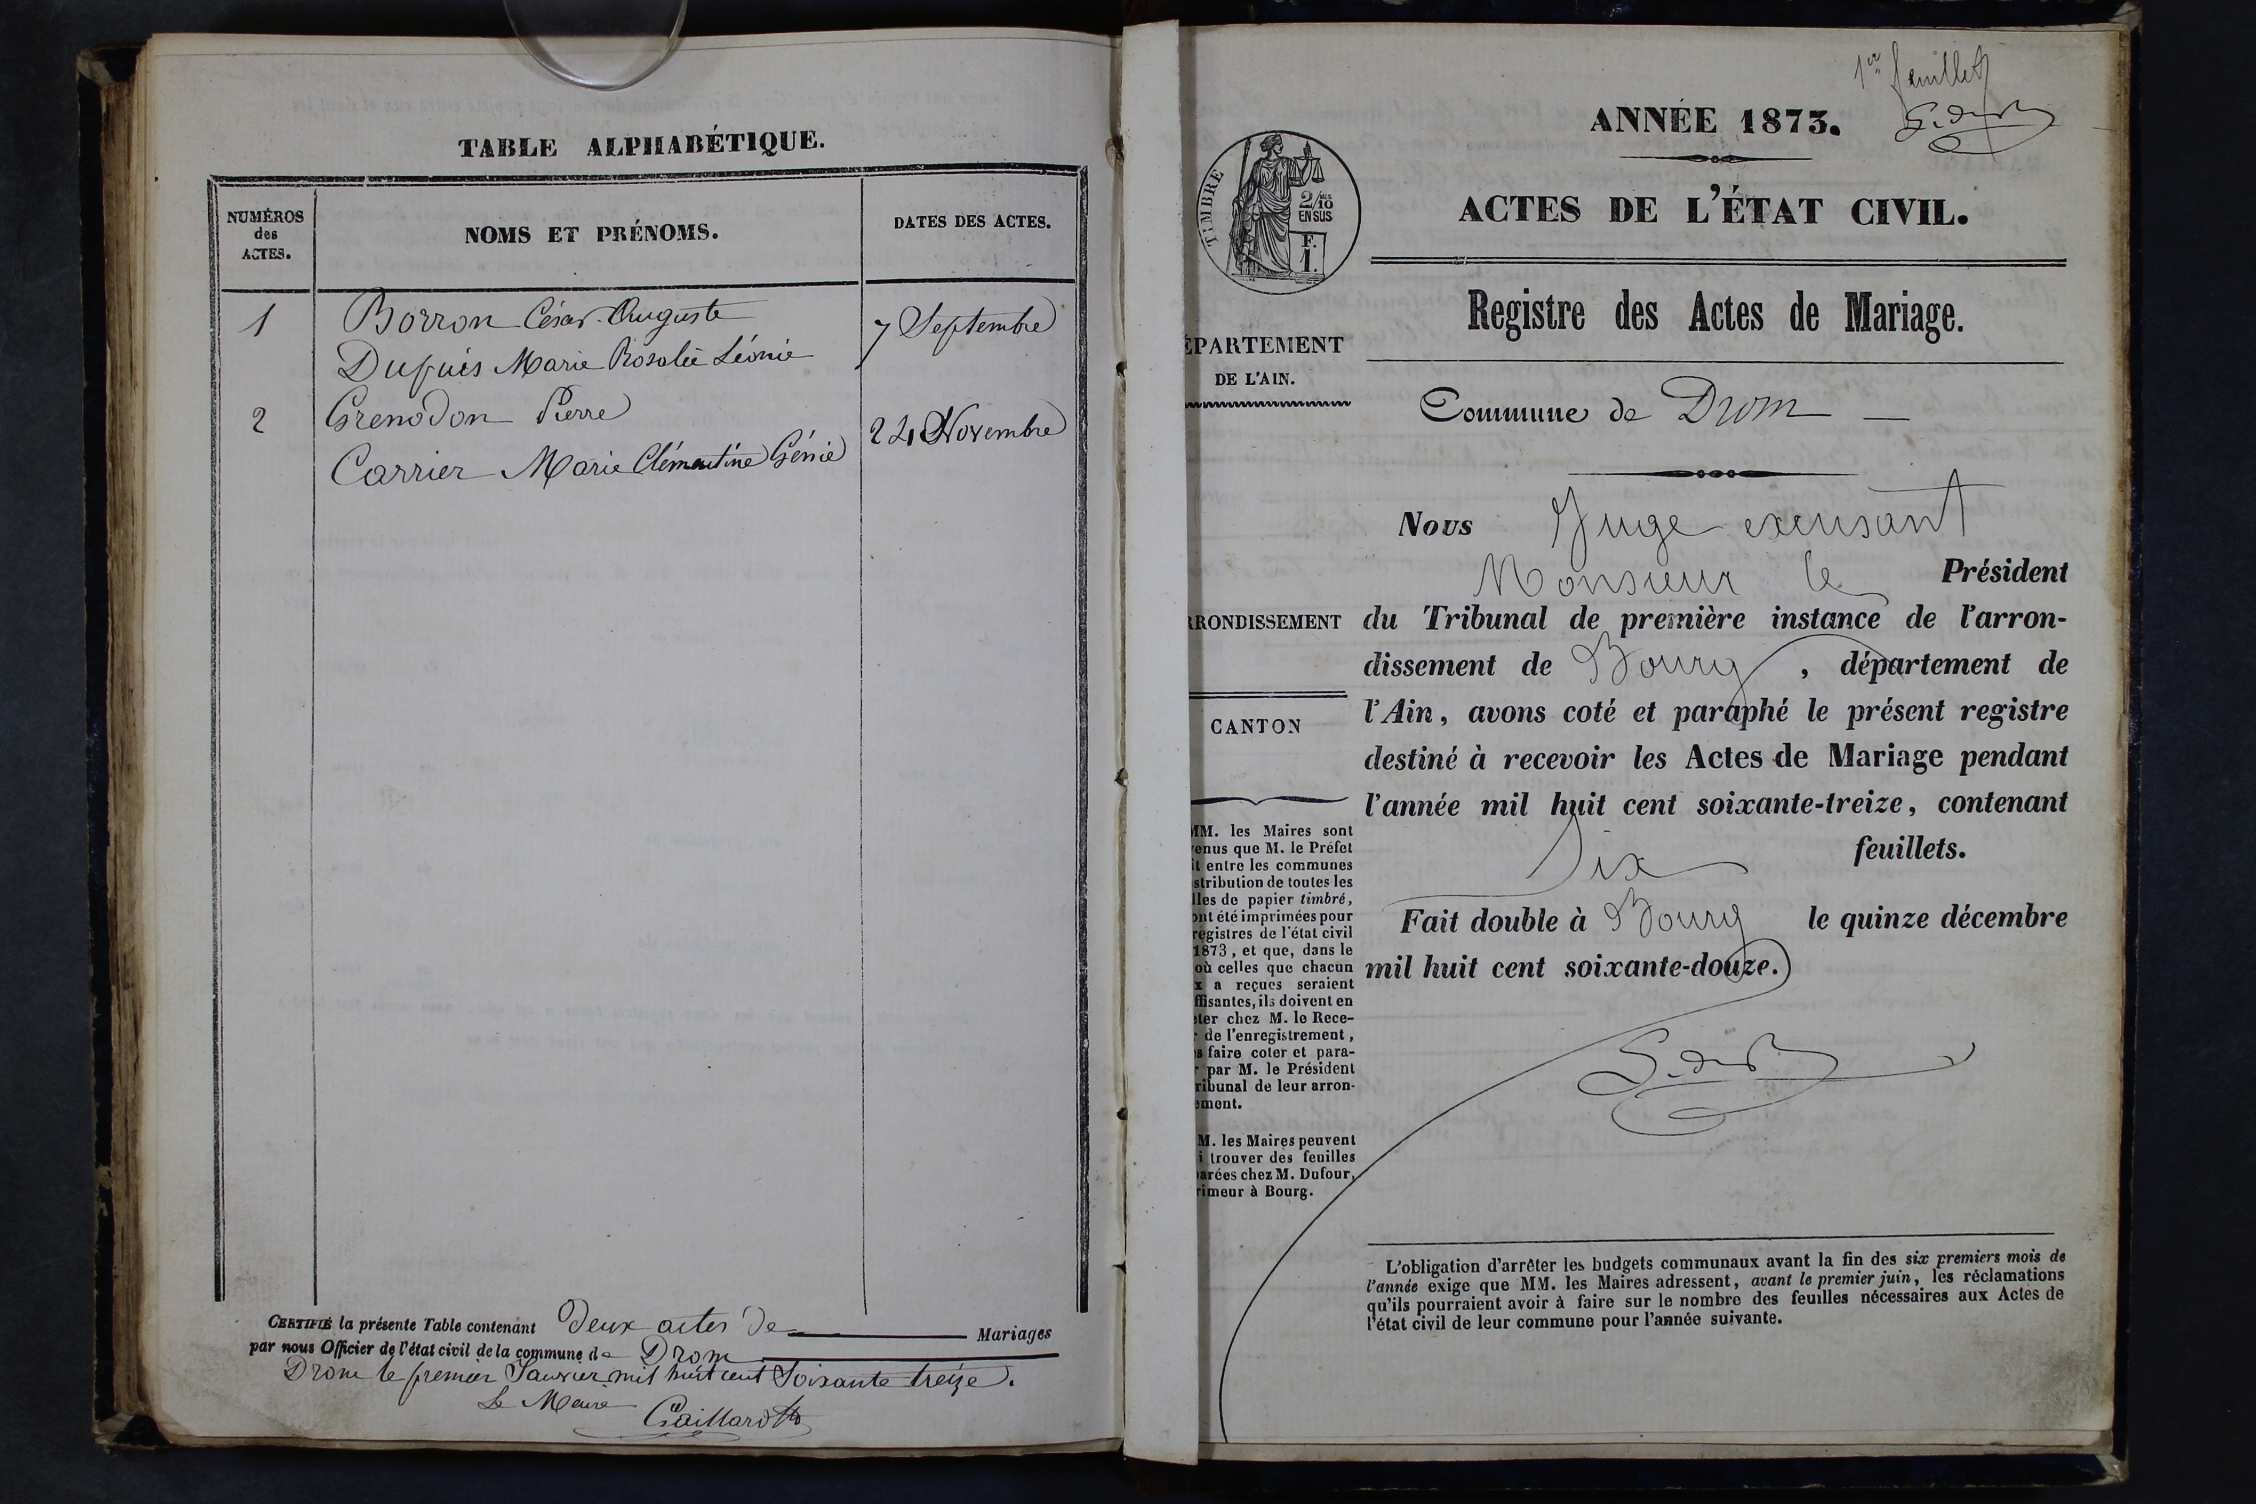 TABLE ALPHABÉTIQUE.
NUMÉROS
des
ACTES.
NOMS ET PRÉNOMS.
DATES DES ACTES.
1
Borron César Auguste
7 Septembre
Dupuis Marie Rosalie Léonie
2
Grenodon Pierre
24 Novembre
Carrier Marie Clémentine Génie
CERTIFIÉ la présente Table contenant Deux actes de Mariages
par nous Officier de l'état civil de la commune de Drom
Drom le premier Janvier mil huit cent Soixante treize.
Le Maire
Gaillard
1er feuillet
ANNÉE 1873.
ACTES DE L'ÉTAT CIVIL.
TIMBRE
2/10
EN SUS
F.
1.
Registre des Actes de Mariage.
ÉPARTEMENT
DE L'AIN.
Commune de Drom
Nous Juge excusant
Monsieur le Président
RRONDISSEMENT
du Tribunal de première instance de l'arron-
dissement de Bourg, département de
l'Ain, avons coté et paraphé le présent registre
destiné à recevoir les Actes de Mariage pendant
l'année mil huit cent soixante-treize, contenant
Six feuillets.
Fait double à Bourg le quinze décembre
mil huit cent soixante-douze.
CANTON
MM. les Maires sont
enus que M. le Préfet
it entre les communes
stribution de toutes les
lles de papier timbré,
ont été imprimées pour
registres de l'état civil
1873, et que, dans le
où celles que chacun
x a reçues seraient
ffisantes, ils doivent en
eter chez M. le Rece-
r de l'enregistrement,
s faire coter et para-
r par M. le Président
ribunal de leur arron-
ement.
M. les Maires peuvent
i trouver des feuilles
arées chez M. Dufour,
rimeur à Bourg.
L'obligation d'arrêter les budgets communaux avant la fin des six premiers mois de
l'année exige que MM. les Maires adressent, avant le premier juin, les réclamations
qu'ils pourraient avoir à faire sur le nombre des feuilles nécessaires aux Actes de
l'état civil de leur commune pour l'année suivante.